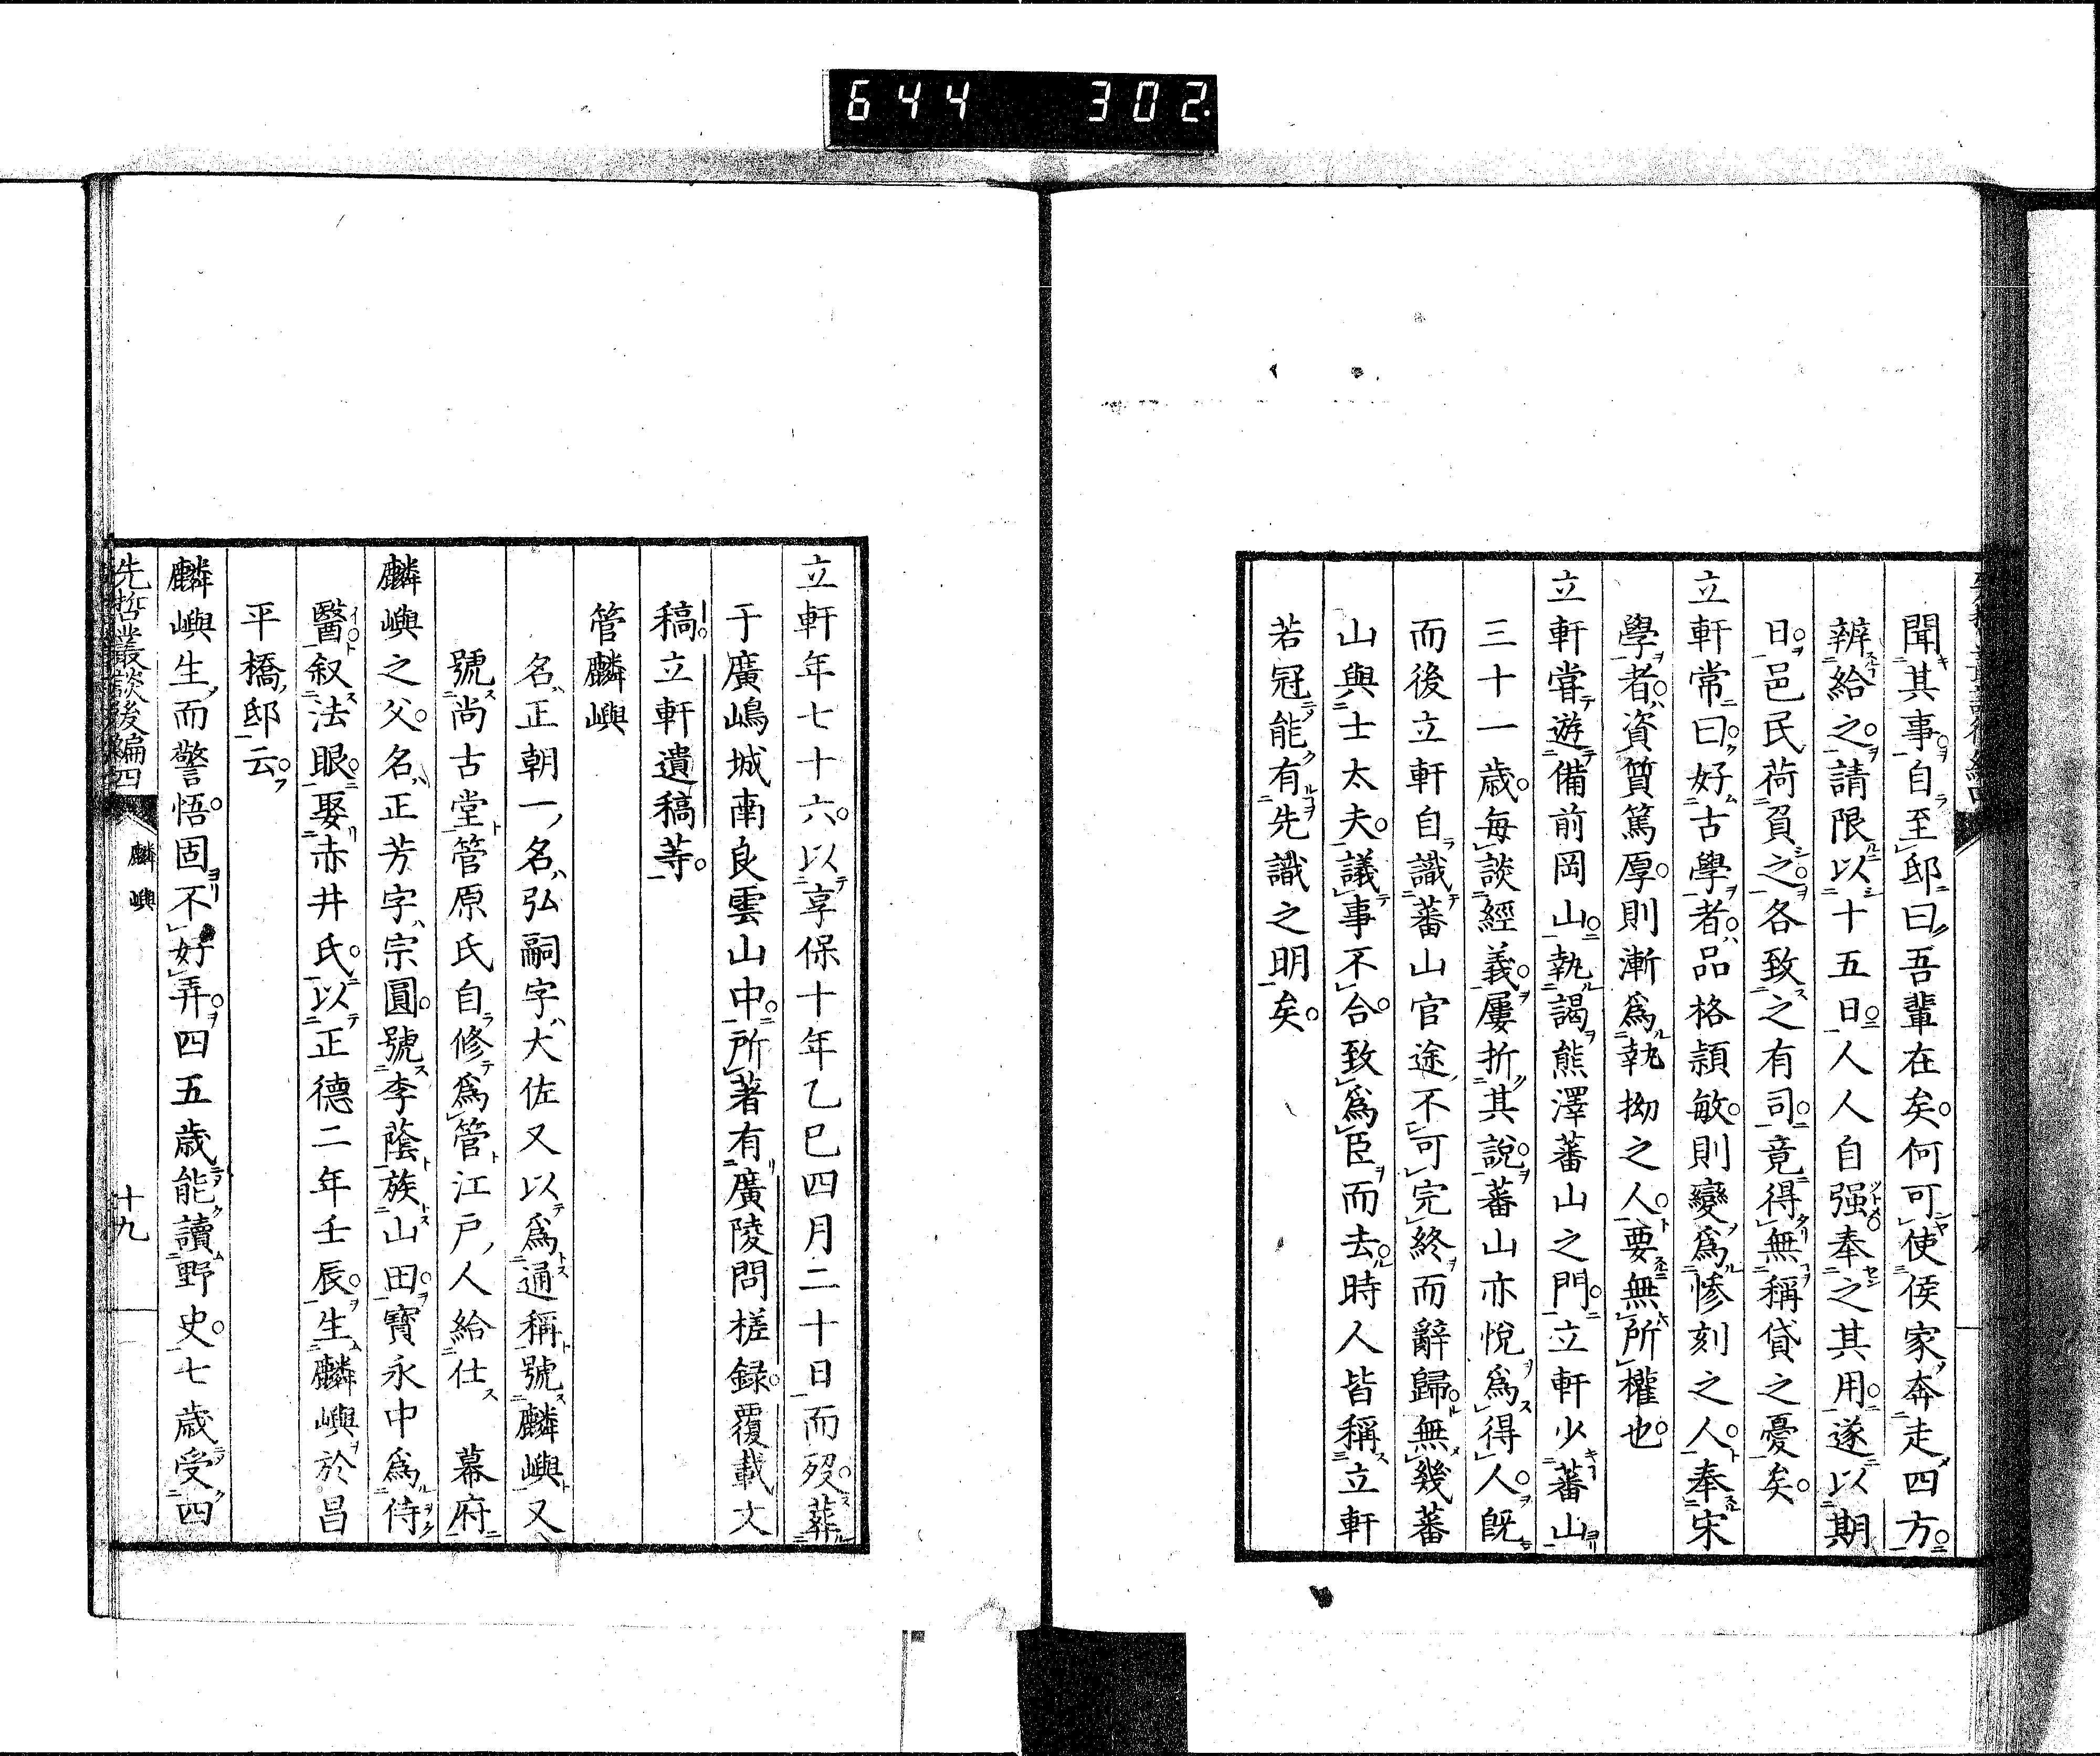 644 302
聞其事自至邸曰吾輩在矣何可使侯家奔走四方
辨給之請限以十五日人人自强奉之其用遂以期
日邑民荷負之各致之有司竟得無稱貸之憂矣
立軒常曰好古學者品格頴敏則變爲慘刻之人奉宋
學者資質篤厚則漸爲執拗之人要無所權也
立軒嘗遊備前岡山執謁熊澤蕃山之門立軒少蕃山
三十一歳每談經義屢折其說蕃山亦悅爲得人既
而後立軒自識蕃山官途不可完終而辭歸無幾蕃
山與士太夫議事不合致爲臣而去時人皆稱立軒
若冠能有先識之明矣
立軒年七十六以享保十年乙巳四月二十日而歿葬
于廣嶋城南良雲山中所著有廣陵問槎録覆載大
稿立軒遺稿等
管麟嶼
名正朝一名弘嗣字大佐又以爲通稱號麟嶼又
號尚古堂管原氏自修爲管江戸人給仕 幕府
麟嶼之父名正芳字宗圓號李蔭族山田寶永中爲侍
醫叙法眼娶赤井氏以正德二年壬辰生麟嶼於昌
平橋邸云
麟嶼生而警悟固不好弄四五歳能讀野史七歳受四
先哲叢談後編四 麟嶼 十九